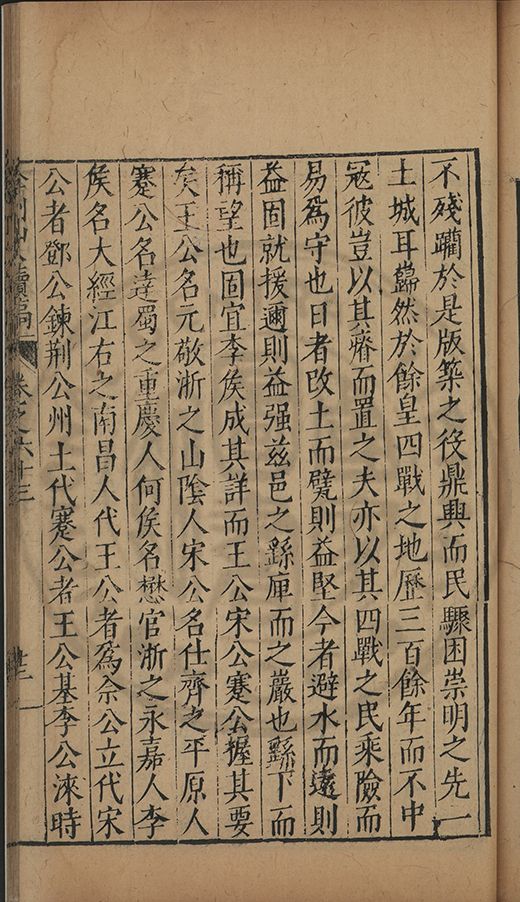 不殘躪於是版築之役鼎興而民驟困崇明之先一
土城耳巋然於餘皇四戰之地歷三百餘年而不中
冦彼豈以其瘠而置之夫亦以其四戰之民乘險而
易爲守也日者改土而甓則益堅今者避水而遠則
益固就援邇則益强兹邑之繇庳而之巖也繇下而
稱望也固宜李侯成其詳而王公宋公蹇公握其要
矣王公名元敬浙之山隂人宋公名仕齊之平原人
蹇公名逹蜀之重慶人何侯名懋官浙之永嘉人李
侯名大經江右之南昌人代王公者爲佘公立代宋
公者鄧公鍊荆公州土代蹇公者王公基李公淶時
續稿 卷之六十三